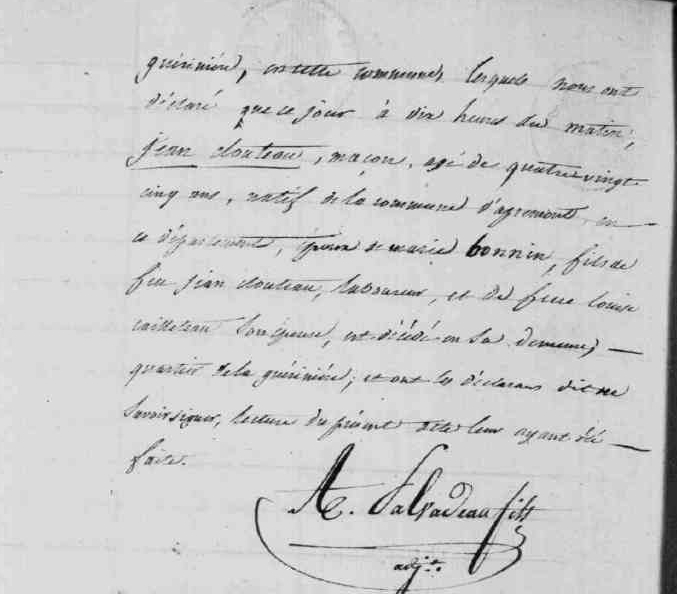 guérinière, en cette commune, lesquels nous ont
déclaré que ce jour à dix heures du matin,
jean clouteau, maçon, agé de quatre vingt
cinq ans, natif de la commune d'apremont, en
ce département, époux de marie bonnin, fils de
feu jean clouteau, laboureur, et de feue louise
cailleteau son épouse, est décédé en sa demeure,
quartier de la guérinière; et ont les déclarans dit ne
savoir signer, lecture du présent acte leur ayant été
faite.
fils
adj.t